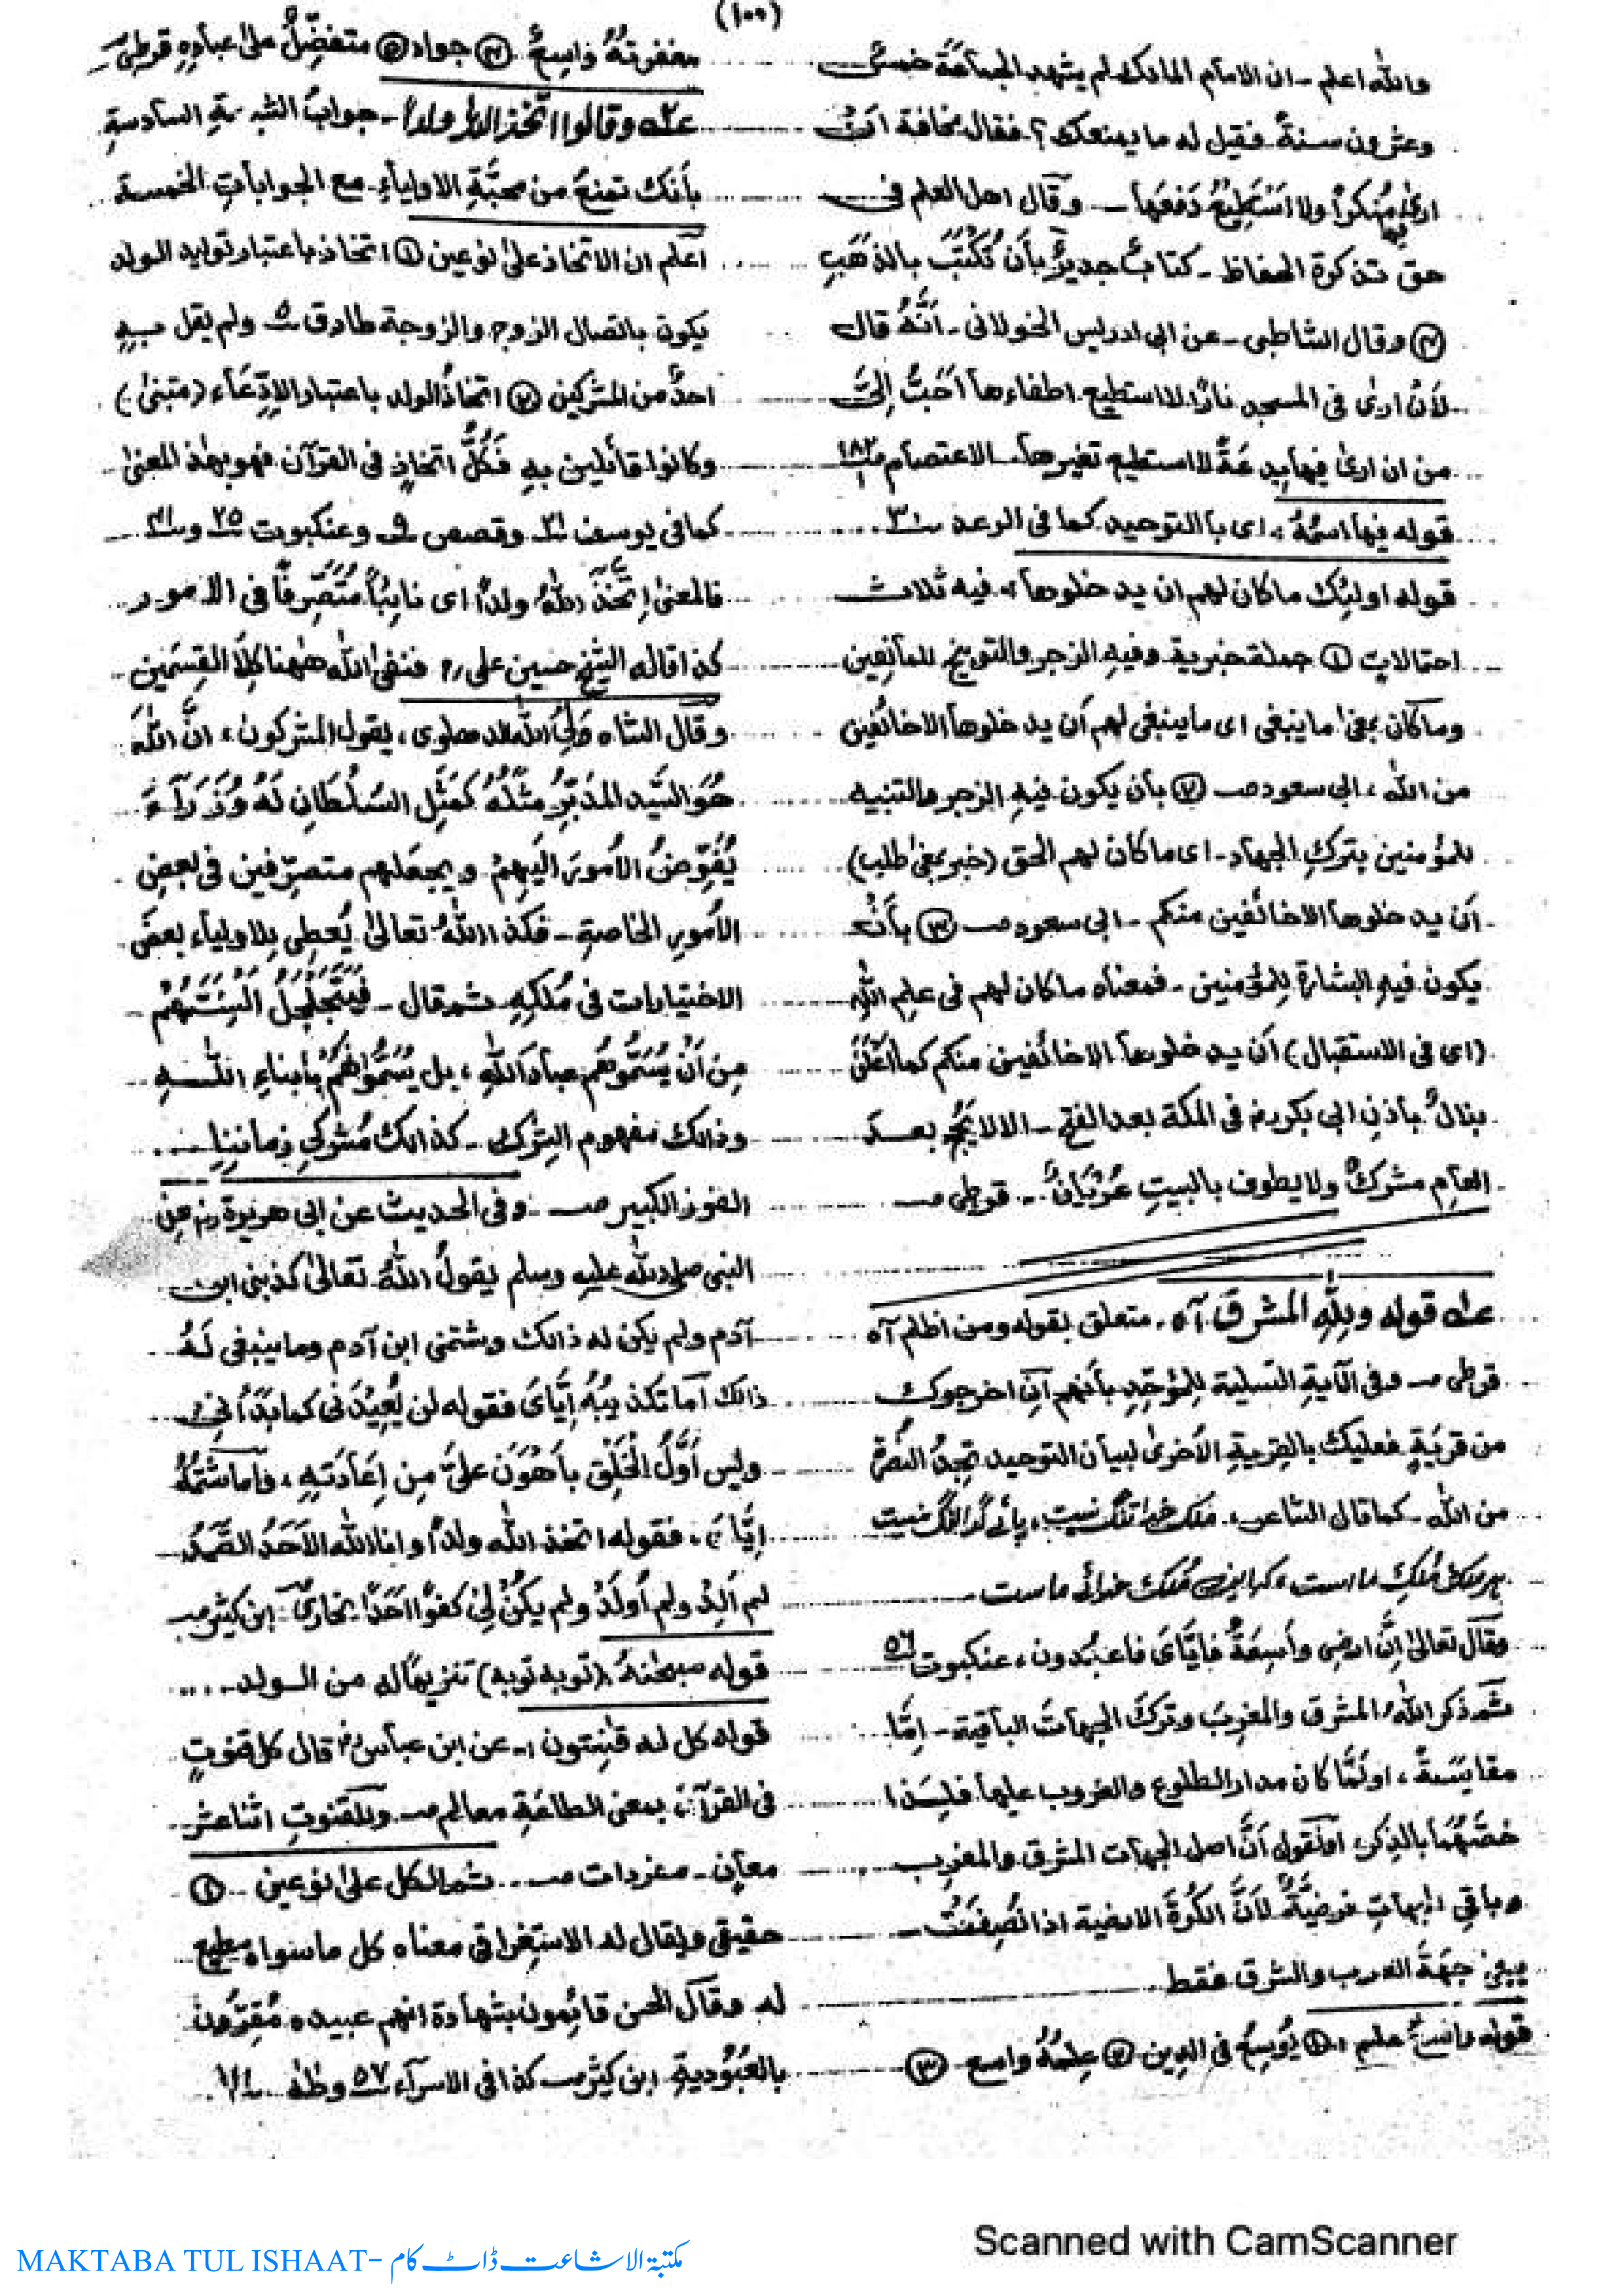 (۱۰۰)
واللہ اعلم - ان الامام المالک لم یشهد الجماعۃ خمسٌ
وعشرون سنۃً فقیل له ما یمنعک؟ فقال مخافۃ انْ
اریٰ مُنکَراً ولا اَسْتَطِیْعُ دَفعَها - وقال اهل العلم فی
حق تذکرۃ الحفاظ - کتابٌ جدیرٌ بأن تُکْتَبَ بالذهَبِ
④ وقال الشاطبی - عن ابی ادریس الخولانی - اَنَّهُ قال
لأن اریٰ فی المسجد ناراً لا استطیع اطفاءها اَحَبُّ اِلَیَّ
من ان اریٰ فیها بدعَۃً لا استطیع تغیرها - الاعتصام ۱۸۲
قوله فیها اسمُهٗ، ای بالتوحید کما فی الرعد ۳۰
قوله اولئک ما کان لهم ان یدخلوها، فیه ثلاث
احتمالات ① جملۃ خبریۃ وفیهِ الزجر والتوبیخ للمانِعین
وما کان بمعنیٰ ما ینبغی ای ما ینبغی لهم اَن یدخلوها الا خائفین
من اللہ، ابی سعود صـ ② بأن یکون فیهِ الزجر والتنبیه
للمؤمنین بترکِ الجهاد - ای ما کان لهم الحق (خبر بمعنیٰ طلب)
اَن یدخلوها الا خائفین منکم - ابی سعود صـ ③ بأنْ
یکون فیهِ البشارۃ للمؤمنین - فمعناه ما کان لهم فی علم اللہ
(ای فی الاستقبال) اَن یدخلوها الا خائفین منکم کما اَعْلَنَ
بلالٌ بأذنِ ابی بکرؓ فی المکۃ بعد الفتح - الا لا یَحُجُّ بعد
العام مشرکٌ ولا یطوف بالبیتِ عُرْیَانٌ - قرطبی صـ
عـ۱ قوله وللهِ المشرق آه، متعلق بقوله ومن اظلم آه
قرطبی صـ وفی الآیۃِ التسلیۃ للموحِّدِ بأنهم اَن اخرجوک
من قریَۃٍ فعلیک بالقریۃِ الاُخریٰ لبیان التوحید تجِدُ النُصرۃ
من اللہ - کما قال الشاعر، ملک خدا تنگ نیست، پائے گدا لنگ نیست
ہر ملک مُلکِ ما است، کہ ایں مُلک خدائے ما ست
وقال تعالیٰ اِنَّ ارضی واسِعَۃٌ فایَّایَ فاعبُدون، عنکبوت ۵۶
ثم ذکر اللہُ المشرق والمغرِبَ وترکَ الجهاتَ الباقیۃ - اِمَّا
مقایَسَۃً، او لَمَّا کان مدار الطلوع والغروب علیها فلِهَذا
خصَّهُما بالذکر، او نقول اَنَّ اصل الجهات المشرق والمغرِب
وباقی الجهاتِ فرضیَّۃٌ لأَنَّ الکُرَۃَ الارضیۃ اذا نُصِفَتْ
یبقیٰ جِهَۃُ الغرب والشرق فقط
قوله واسعٌ علیم، ① یُوسِعُ فی الدین ② عِلمُهٗ واسع ③
مغفرتُهٗ واسِعٌ ④ جواد ⑤ متفضِّلٌ علیٰ عبادِهٖ قرطبی
عـ۲ وقالوا اتَّخذ اللہ ولداً - جوابُ الشبهۃِ السادسۃِ
بأنک تمنعُ من محبَّۃِ الاولیآءِ مع الجواباتِ الخمسۃ
اَعلم ان الاتخاذ علیٰ نوعین ① اتخاذ باعتبار تولید الولد
یکون باتصال الزوج والزوجۃ طارق ۵ ولم یقل به
احدٌ من المشرکین ② اتخاذُ الولد باعتبار الاِدِّعَآء (متبنیٰ)
وکانوا قائلین بهِ فَکُلُّ اتخاذٍ فی القرآن فهو بهٰذ المعنیٰ
کما فی یوسف ۲۱ وقصص ۹ وعنکبوت ۲۵ و ۴۱
فالمعنیٰ اِتَّخَذَ اللہُ ولداً ای نائِباً مُتَصَرِفاً فی الامور
کذا قاله الشیخ حسین علیؒ فنفی اللہ هٰهنا کِلَا القِسمَین
وقال الشاه ولی اللہ الدهلوی، یقول المشرکون، انَّ اللہَ
هُوَ السَّیِّد المدَبِّرُ مثلُهٗ کَمَثَلِ السُلْطَانِ لَهٗ وُزَرَآءُ
یُفَوِّضُ الاُمورَ اِلَیهِمْ ویجعَلهم متصرِّفین فی بعضِ
الاُمورِ الخاصۃِ - فکذا اللہُ تعالیٰ یُعطی للاولیآء بعضَ
الاختیارات فی مُلکِهٖ ثم قال - فیتَجَلْجَلُ اَلْسِنَتُهُمْ
مِن اَنْ یُسَمُّوهُم عبادَ اللہِ، بل یُسَمُّوْنَهُمْ بأبناءِ اللہ
وذالک مفهوم الشرک - کذالک مُشرکی زمانِنا
الفوز الکبیر صـ - وفی الحدیث عن ابی هریرۃؓ عن
النبی صلی اللہ علیه وسلم یقول اللہُ تعالیٰ کذبنی ابن
آدم ولم یکن له ذالک وشتمنی ابن آدم وما ینبغی لَهٗ
ذالک اَما تکذیبُهٗ اِیَّایَ فقوله لن یُعِیْدَنی کما بَدَأنی
ولیس اَوَّلُ الخَلْقِ بِاَهْوَنَ علیَّ مِن اِعَادَتِهٖ، واما شَتمُهٗ
اِیَّایَ، فقوله اتخذ اللہ ولداً وانا اللہ الاَحَدُ الصَّمَدُ
لم اَلِدْ ولم اُولَدْ ولم یکنْ لِیْ کفوًا اَحَدٌ بخاری، ابن کثیر صـ
قوله سبحٰنهٗ (توبہ توبہ) تنزیهًا له من الولد
قوله کل له قٰنِتون، عن ابن عباسؓ قال کل قنوتٍ
فی القرآن بمعنی الطاعَۃِ معالم صـ وللقنوتِ اثنا عشر
معانٍ - مفردات صـ ثم الکل علیٰ نوعین ①
حقیقی ویقال له الاستغراقی معناه کل ما سواه مطیع
له وقال الحسن قائِمون بشهادۃ انهم عبیده، مُقِرُّون
بالعُبُوْدیۃِ ابن کثیر صـ کذا فی الاسرآء ۵۷ وطٰهٰ
Scanned with CamScanner
MAKTABA TUL ISHAAT- مکتبۃ الاشاعت ڈاٹ کام